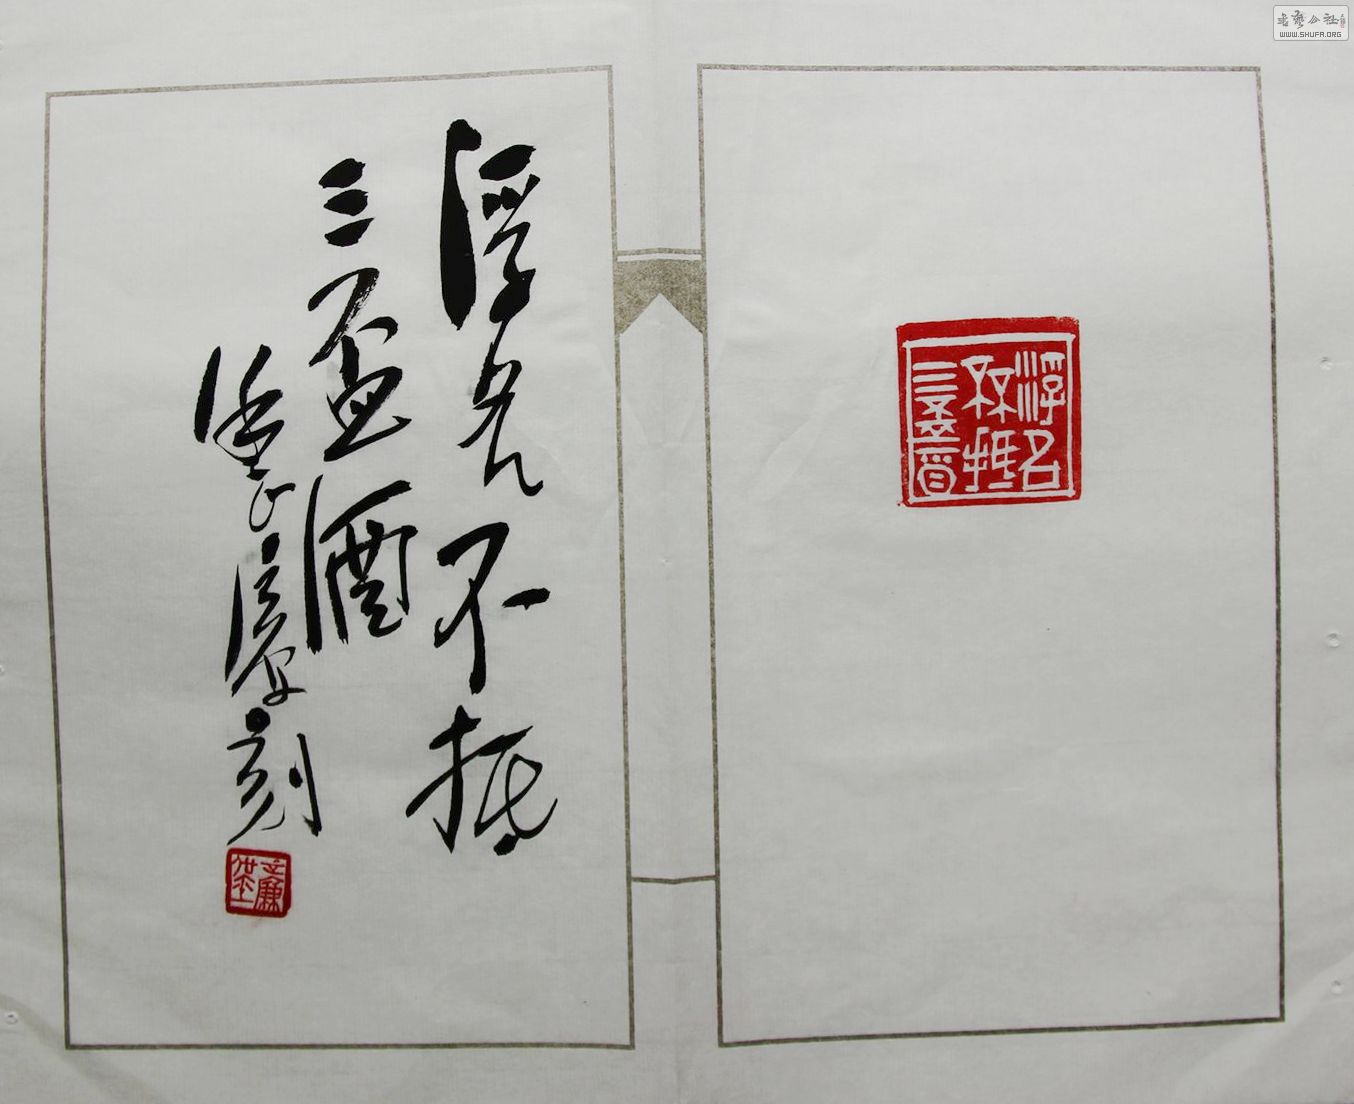 浮名不抵
三盃酒
刻
浮名
不抵
三盃酉
書艺公社
WWW.SHUFA.ORG